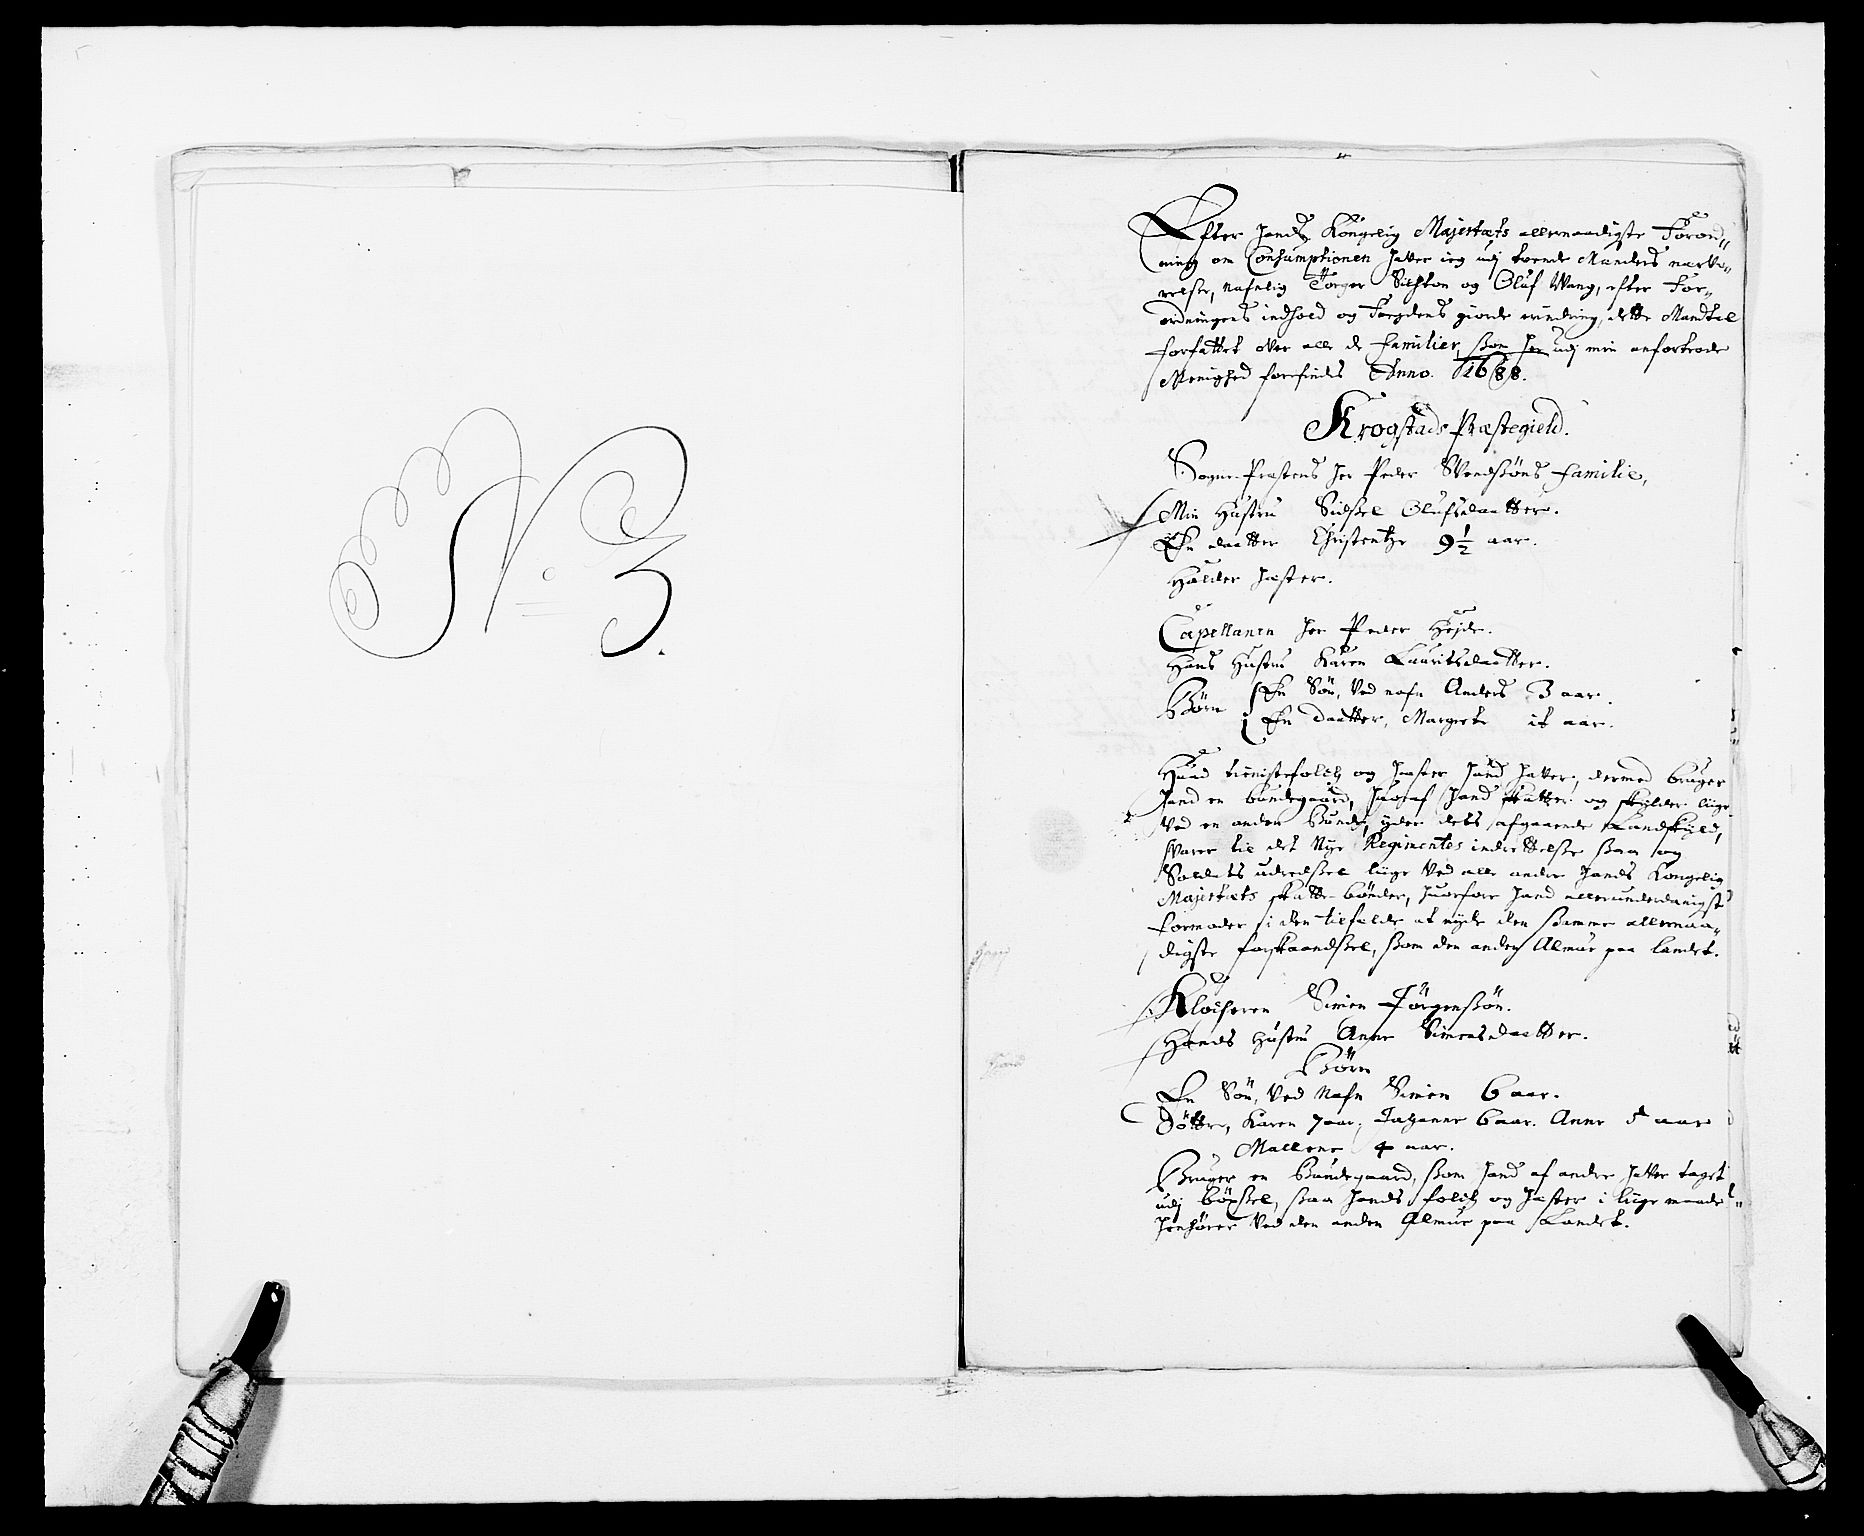 No 3.
Efter hands Kongelig Majestæts allernaadigste Forord„
ning om Consumptionen hafver ieg udj tvende Mænders nærvæ„
relse, nafnlig Torger Siltken og Oluf Wang, efter For„
ordningens indhold og Fogdens giorde erindring, dette Mandtal
forfattet over alle de familier, som her udj min anfortrode
Menighed forefindes Anno. 1688.
Krogstads Præstegield.
Sogne-Præstens her Peder Svendsøns familie,
Min Hustru Sidsel Olufsdaatter.
En daatter Christentze 9½ aar.
Holder hester.
Capellanen her Peder Højer.
Hans Hustru Karen Lauritsdaatter.
Børn En Søn, ved nafn Anders 3 aar.
En daatter, Margrete it aar.
Huad tienistefolch og hester hand hafver, dermed bruger
hand en bundegaard, huoraf hand skatter og skylder liige
ved en anden Bunde, yder dets afgaaende Landskyld,
svarer til det Nye Regimentes indrettelse saa og
Soldats udredsel liige ved alle andre hands Kongelig
Majestæts skatte-bønder, huorfore hand allerunderdanigst
formoder i den tilfelde at nyde den samme allernaa„
digste forskaandsel, som den anden Almue paa landet.
Klocheren Simen Jörgensøn.
Hands Hustru Anne Simensdaatter.
Børn
En Søn, ved Nafn Simen 6 aar.
Döttre, Karen 7 aar, Johanne 6 aar. Anne 5 aar
Mallene 4 aar.
Bruger en Bundegaard, som hand af andre hafver taget
udj böxsel, saa hands folch og hester i liige maade
henhører ved den anden Almue paa Landet.